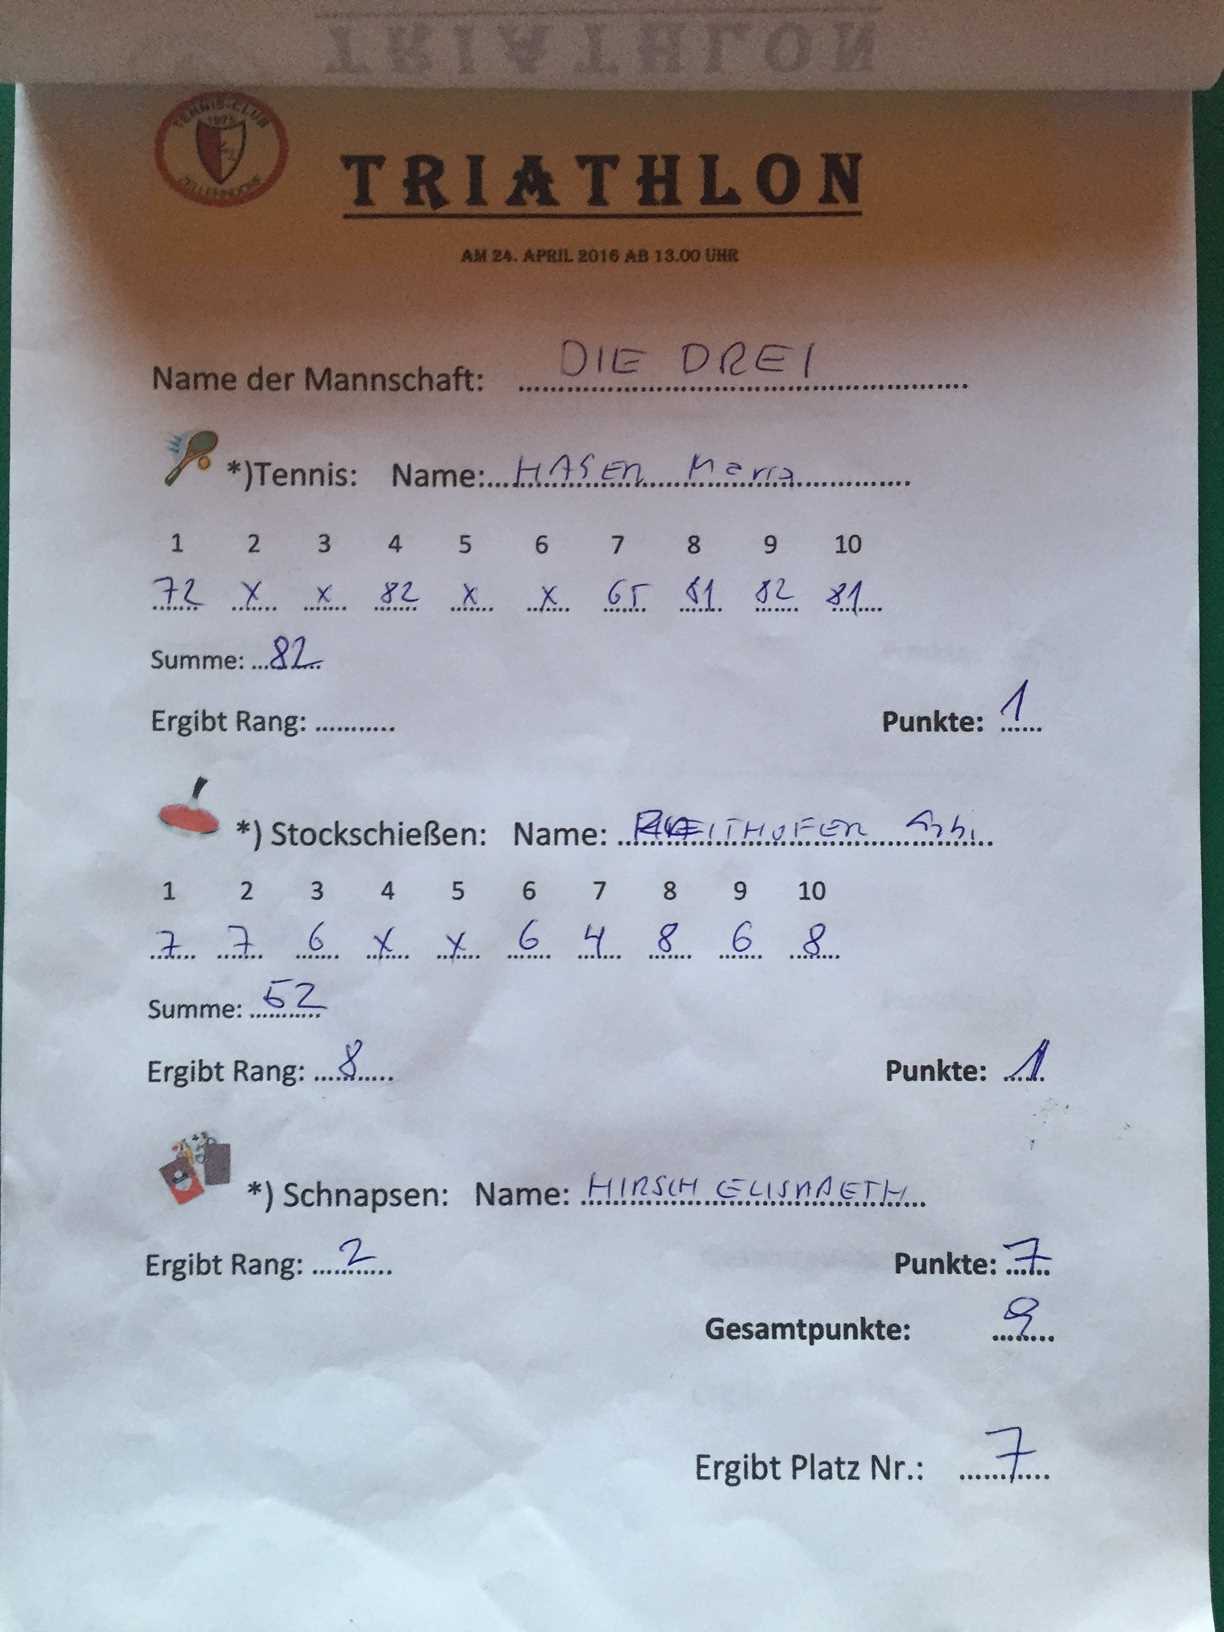 TRIATHLON
TENNIS-CLUB
1975
ZELLERNDORF
TRIATHLON
AM 24. APRIL 2016 AB 13.00 UHR
Name der Mannschaft: DIE DREI
*)Tennis: Name: HASEN Maria
1 2 3 4 5 6 7 8 9 10
72 x x 82 x x 65 81 82 81
Summe: 82
Ergibt Rang: Punkte: 1
*) Stockschießen: Name:
1 2 3 4 5 6 7 8 9 10
7 7 6 x x 6 4 8 6 8
Summe: 52
Ergibt Rang: 8 Punkte: 1
*) Schnapsen: Name: HIRSCH ELISABETH
Ergibt Rang: 2 Punkte: 7
Gesamtpunkte: 9
Ergibt Platz Nr.: 7